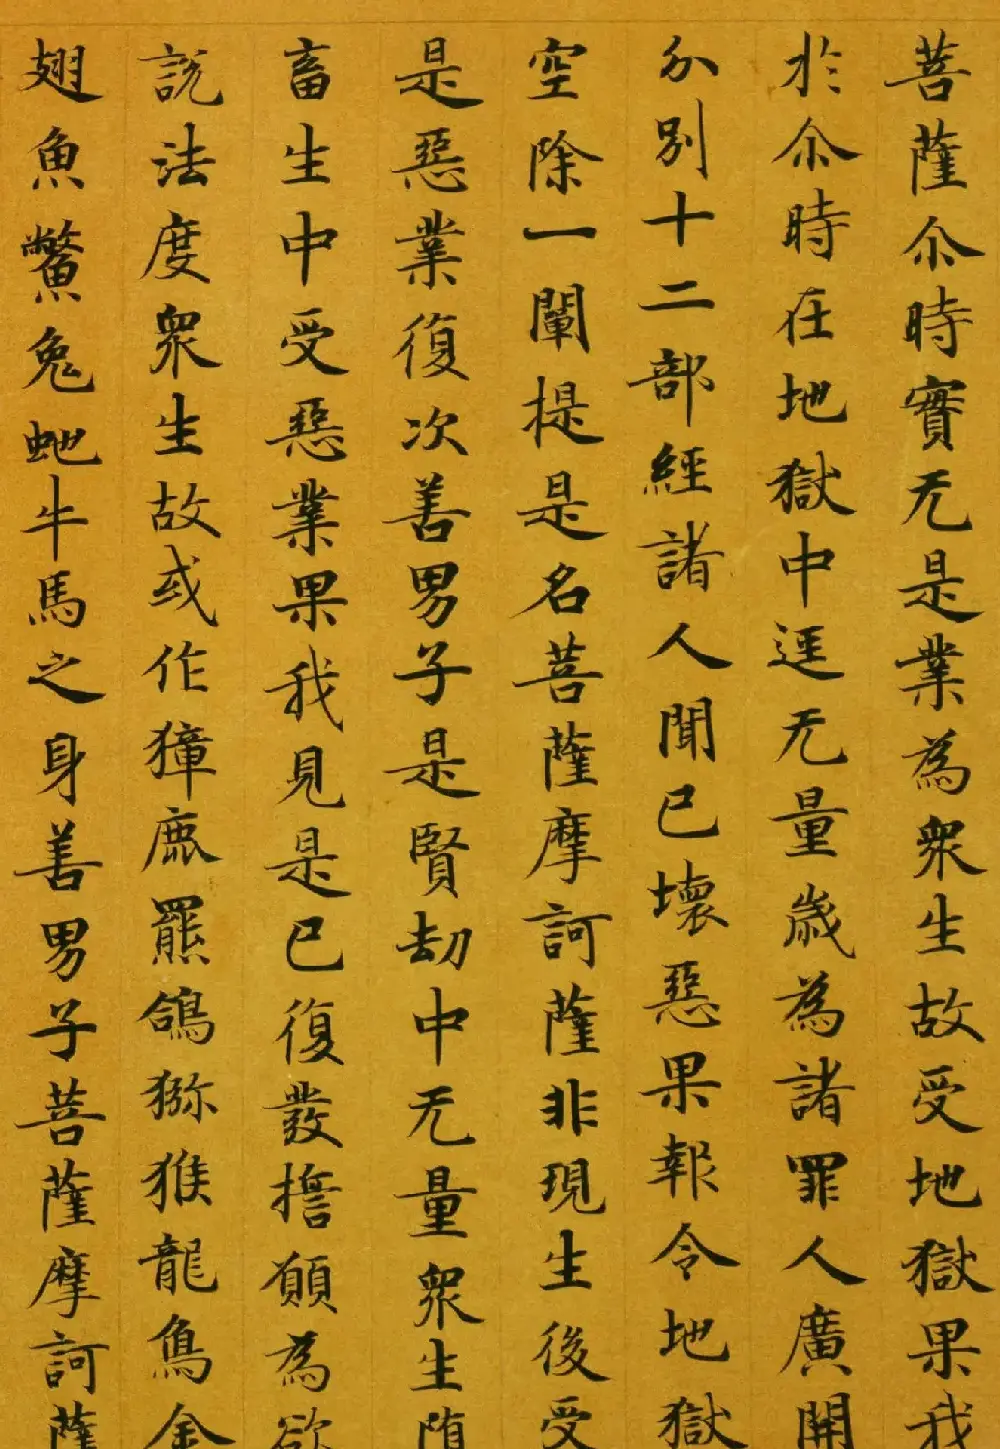 菩薩尒時實无是業為衆生故受地獄果我
於尒時在地獄中逕无量歲為諸罪人廣開
分別十二部經諸人聞已壞惡果報令地獄
空除一闡提是名菩薩摩訶薩非現生後受
是惡業復次善男子是賢劫中无量衆生堕
畜生中受惡業果我見是已復發誓願為欲
說法度衆生故或作獐鹿羆鴿猕猴龍鳥金
翅魚鱉兔虵牛馬之身善男子菩薩摩訶薩